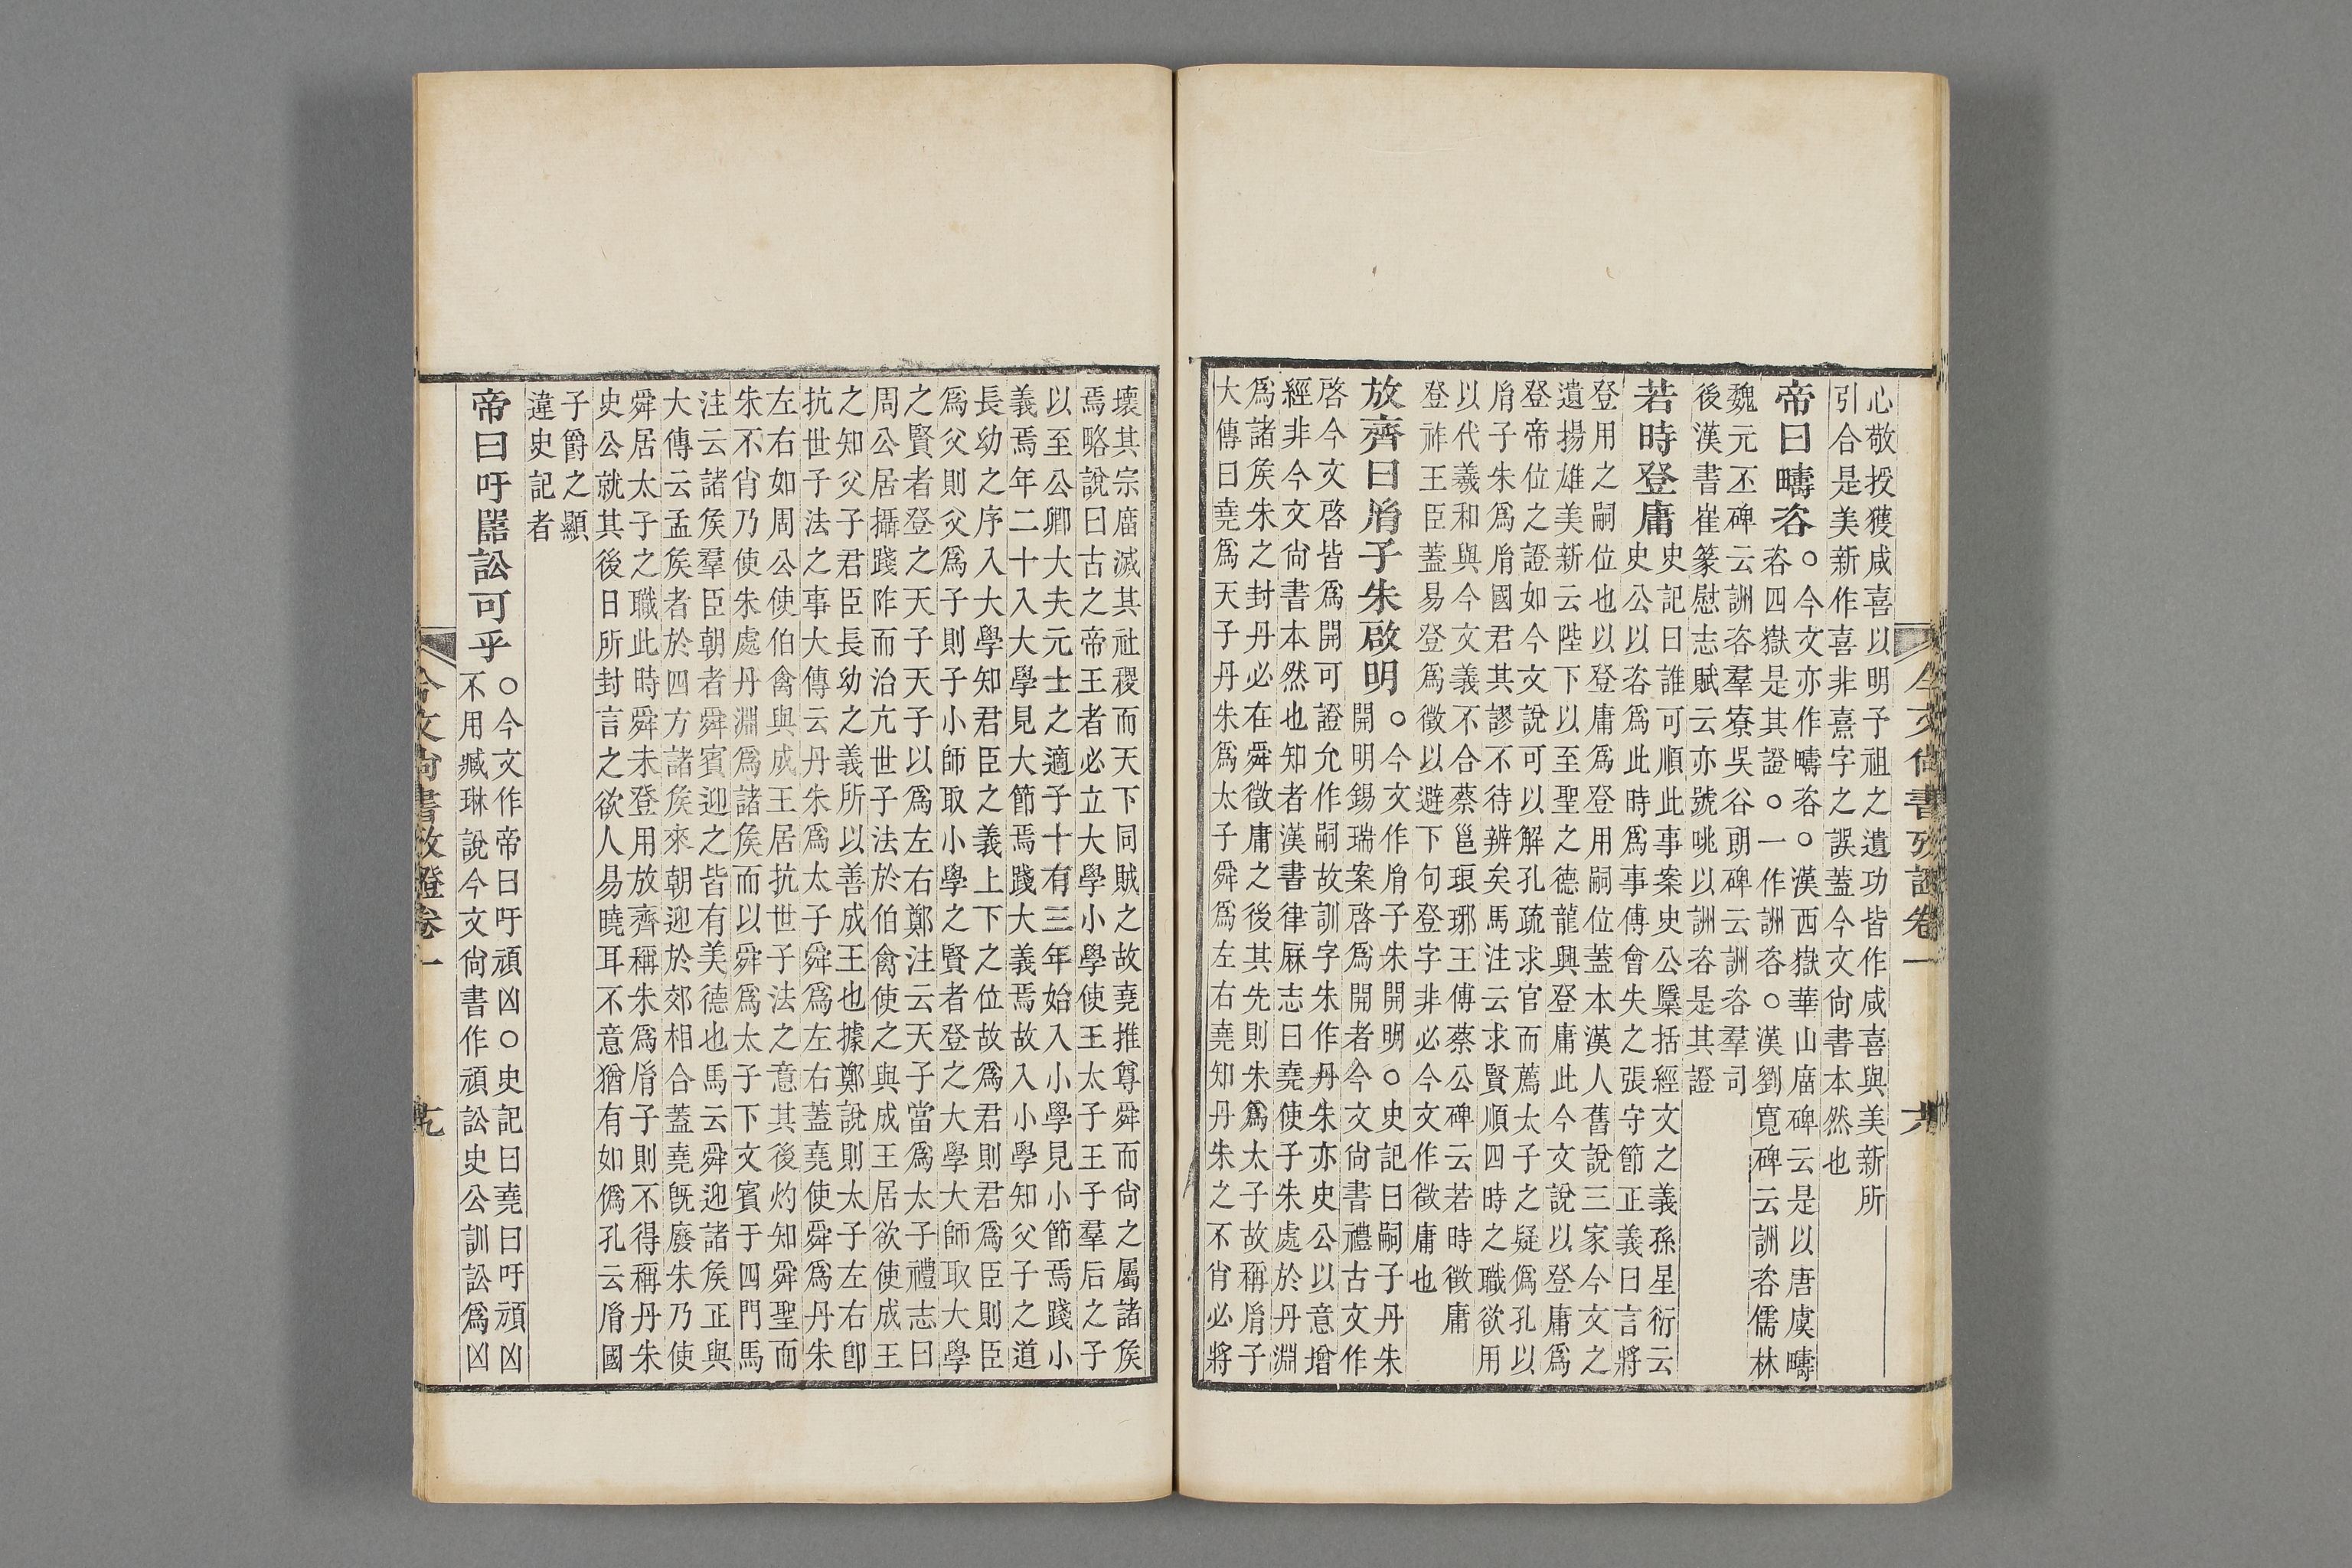 心敬授獲咸喜以明子祖之遺功皆作咸喜與美新所
引合是美新作喜非熹字之誤蓋今文尙書本然也
帝曰疇咨
○今文亦作疇咨○漢西嶽華山廟碑云是以唐虞疇
咨四嶽是其證○一作詶咨○漢劉寬碑云詶咨儒林
魏元丕碑云詶咨羣寮吳谷朗碑云詶咨羣司
後漢書崔篆慰志賦云亦號咷以詶咨是其證
若時登庸
史記曰誰可順此事案史公檃括經文之義孫星衍云
史公以咨爲此時爲事傅會失之張守節正義曰言將
登用之嗣位也以登庸爲登用嗣位蓋本漢人舊說三家今文之
遺揚雄美新云陛下以至聖之德龍興登庸此今文說以登庸爲
登帝位之證如今文說可以解孔疏求官而薦太子之疑僞孔以
胤子朱爲胤國君其謬不待辨矣馬注云求賢順四時之職欲用
以代羲和與今文義不合蔡邕琅琊王傅蔡公碑云若時徵庸
登祚王臣蓋易登爲徵以避下句登字非必今文作徵庸也
放齊曰胤子朱啟明
○今文作胤子朱開明○史記曰嗣子丹朱
開明錫瑞案啓爲開者今文尙書禮古文作
啓今文啓皆爲開可證允作嗣故訓字朱作丹朱亦史公以意增
經非今文尙書本然也知者漢書律厤志曰堯使子朱處於丹淵
爲諸矦朱之封丹必在舜徵庸之後其先則朱爲太子故稱胤子
大傳曰堯爲天子丹朱爲太子舜爲左右堯知丹朱之不肖必將
今文尙書攷證卷一
大
壞其宗廟滅其社稷而天下同賊之故堯推尊舜而尙之屬諸矦
焉略說曰古之帝王者必立大學小學使王太子王子羣后之子
以至公卿大夫元士之適子十有三年始入小學見小節焉踐小
義焉年二十入大學見大節焉踐大義焉故入小學知父子之道
長幼之序入大學知君臣之義上下之位故爲君則君爲臣則臣
爲父則父爲子則子小師取小學之賢者登之大學大師取大學
之賢者登之天子天子以爲左右鄭注云天子當爲太子禮志曰
周公居攝踐阼而治亢世子法於伯禽使之與成王居欲使成王
之知父子君臣長幼之義所以善成王也據鄭說則太子左右卽
抗世子法之事大傳云丹朱爲太子舜爲左右蓋堯使舜爲丹朱
左右如周公使伯禽與成王居抗世子法之意其後灼知舜聖而
朱不肖乃使朱處丹淵爲諸矦而以舜爲太子下文賓于四門馬
注云諸矦羣臣朝者舜賓迎之皆有美德也馬云舜迎諸矦正與
大傳云孟矦者於四方諸矦來朝迎於郊相合蓋堯旣廢朱乃使
舜居太子之職此時舜未登用放齊稱朱爲胤子則不得稱丹朱
史公就其後日所封言之欲人易曉耳不意猶有如僞孔云胤國
子爵之顯
違史記者
帝曰吁嚚訟可乎
○今文作帝曰吁頑凶○史記曰堯曰吁頑凶
不用臧琳說今文尙書作頑訟史公訓訟爲凶
今文尙書攷證卷一